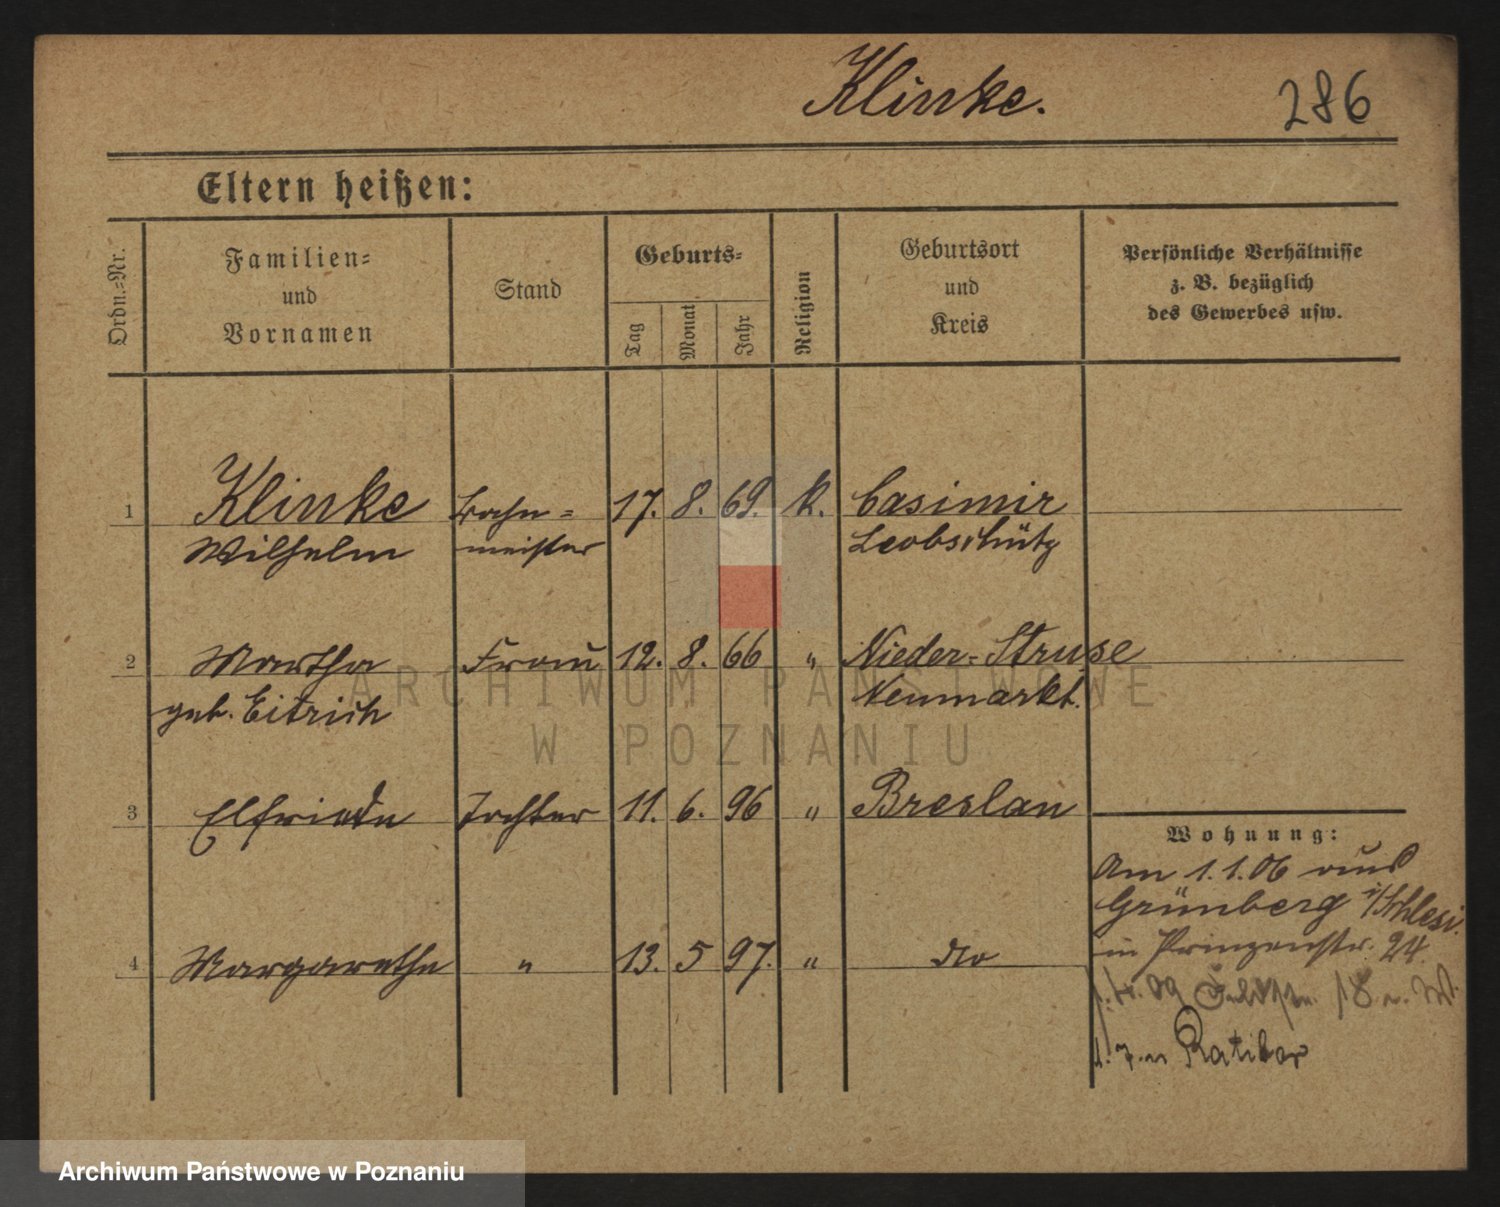 Klinke.
286
Eltern heißen:
Ordn.-Nr.
Familien-
und
Vornamen
Stand
Geburts-
Tag
Monat
Jahr
Religion
Geburtsort
und
Kreis
Persönliche Verhältnisse
z. B. bezüglich
des Gewerbes usw.
1 Klinke Bahn- 17. 8. 69. k. Casimir
Wilhelm meister Leobschütz
2 Martha Frau 12. 8. 66 " Nieder-Struse
geb. Eitrich Neumarkt.
ARCHIWUM PAŃSTWOWE
W POZNANIU
3 Elfriede Tochter 11. 6. 96 " Breslau
Wohnung:
Am 1.1.06 aus
Grünberg i/Schlesi.
in Prinzenstr. 24.
4 Margarethe " 13. 5 97. " do
09 18 W.
Ratibor
Archiwum Państwowe w Poznaniu